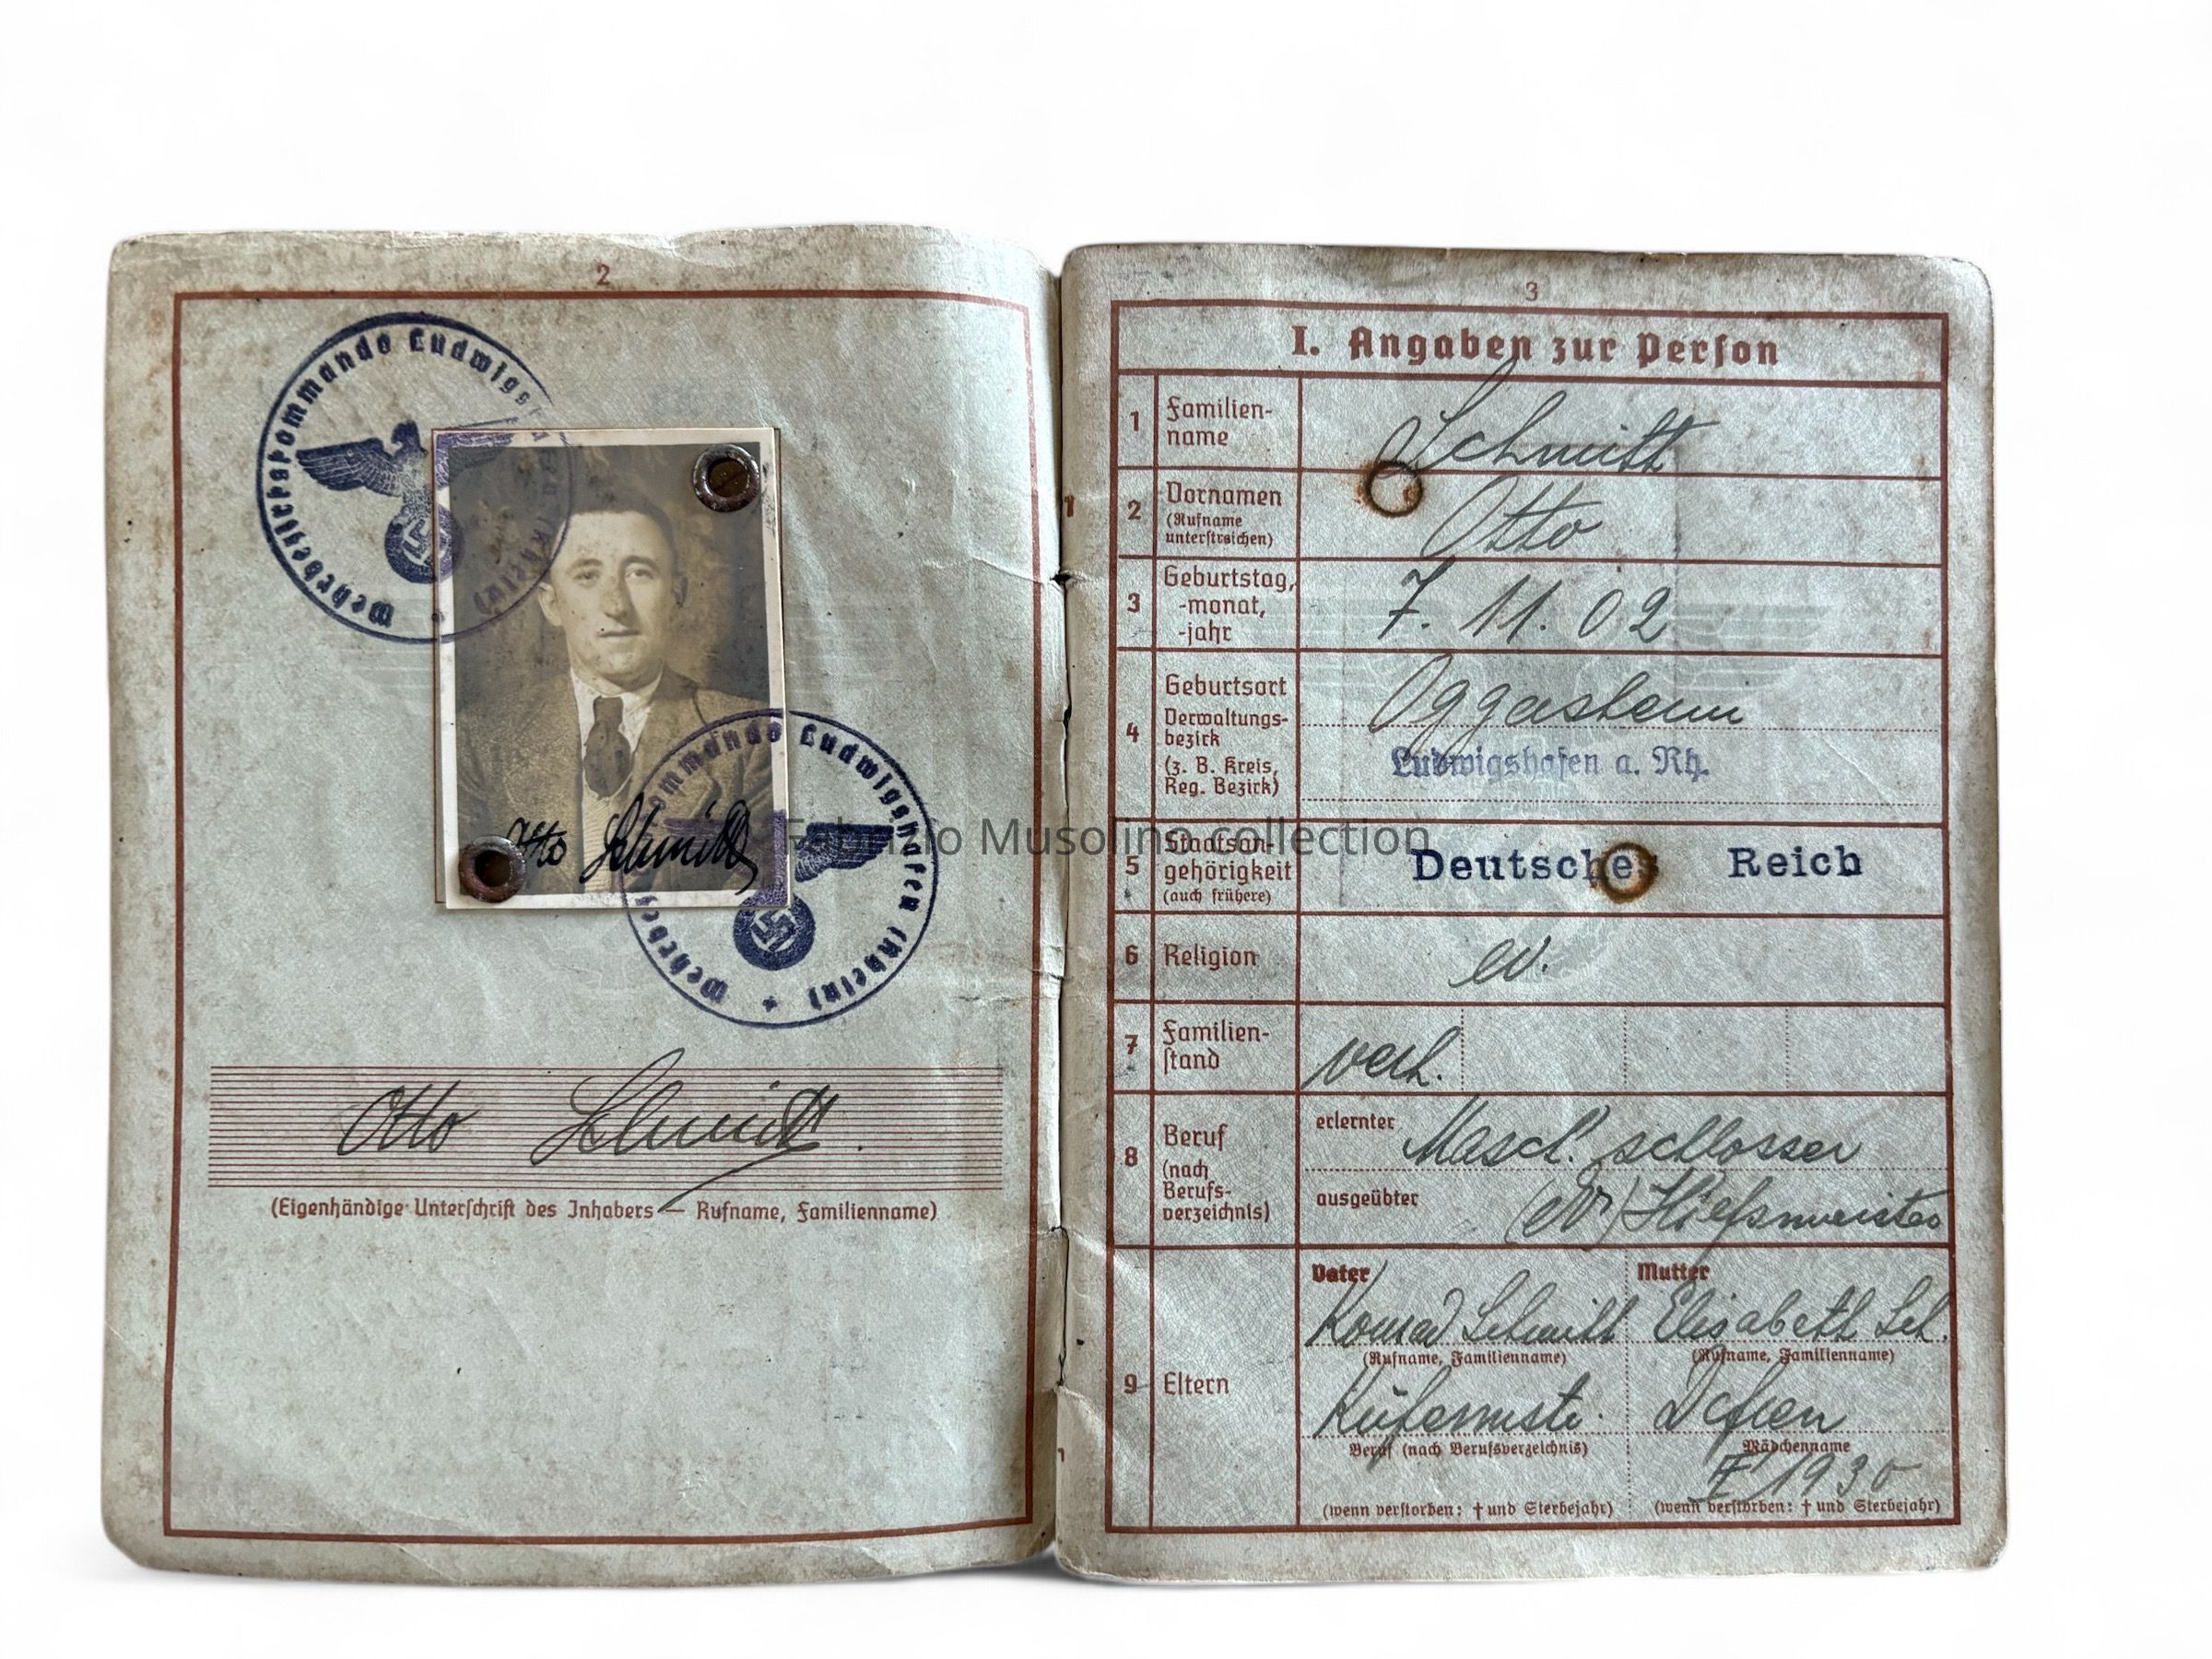 2
Wehrbezirkskommando Ludwigshafen (Rhein)
Otto Schmitt
Wehrbezirkskommando Ludwigshafen (Rhein)
Otto Schmitt.
(Eigenhändige Unterschrift des Inhabers — Rufname, Familienname)
Fabrizio Musolino collection
3
I. Angaben zur Person
1 Familien-
name
Schmitt
2 Vornamen
(Rufname
unterstreichen)
Otto
3 Geburtstag,
-monat,
-jahr
7. 11. 02
4 Geburtsort
Verwaltungs-
bezirk
(z. B. Kreis,
Reg. Bezirk)
Ludwigshafen a. Rh.
5 Staatsan-
gehörigkeit
(auch frühere)
Deutsches Reich
6 Religion
ev.
7 Familien-
stand
verh.
8 Beruf
(nach
Berufs-
verzeichnis)
erlernter Masch. schlosser
ausgeübter
9 Eltern
Vater
Konrad Schmitt
(Rufname, Familienname)
Beruf (nach Berufsverzeichnis)
(wenn verstorben: † und Sterbejahr)
Mutter
Elisabeth Sch.
(Rufname, Familienname)
Mädchenname
1930
(wenn verstorben: † und Sterbejahr)